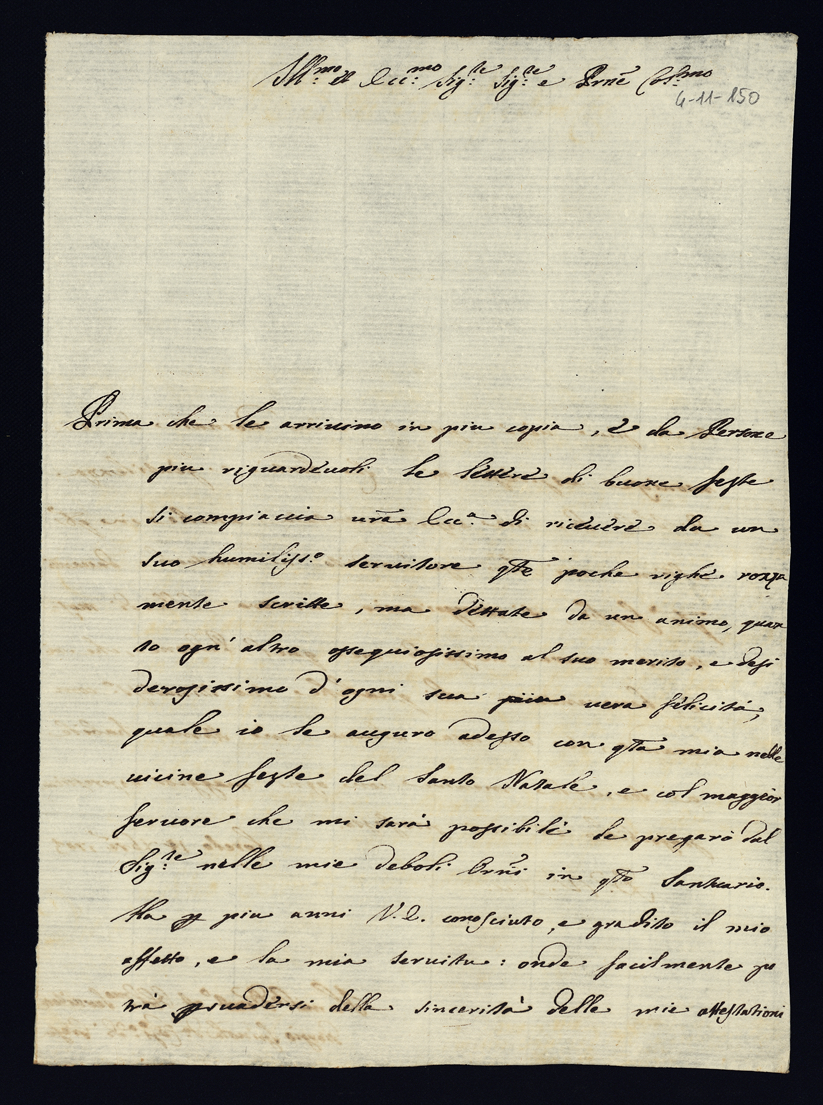 Ill:mo et Ecc:mo Sig:re Sig:re e Prñe Col:mo
4-11-150
Prima che le arrivino in piu copia, è da Persone
piu riguardevoli le lettere di buone feste
si compiaccia vrã Ecc:a di ricevere da un
suo humiliss:o servitore qte poche righe rozza
mente scritte, ma dettate da un animo, quan
to ogn' altro ossequiosissimo al suo merito, e desi
derosissimo d' ogni sua piu vera felicità,
quale io le auguro adesso con qta mia nelle
vicine feste del Santo Natale, e col maggior
fervore che mi sarà possibile le pregarò dal
Sig:re nelle mie deboli Orñi in qto Santuario.
Ha p piu anni V. E. conosciuto, e gradito il mio
affetto, e la mia servitu: onde facilmente po
trà psuadersi della sincerità delle mie attestationi